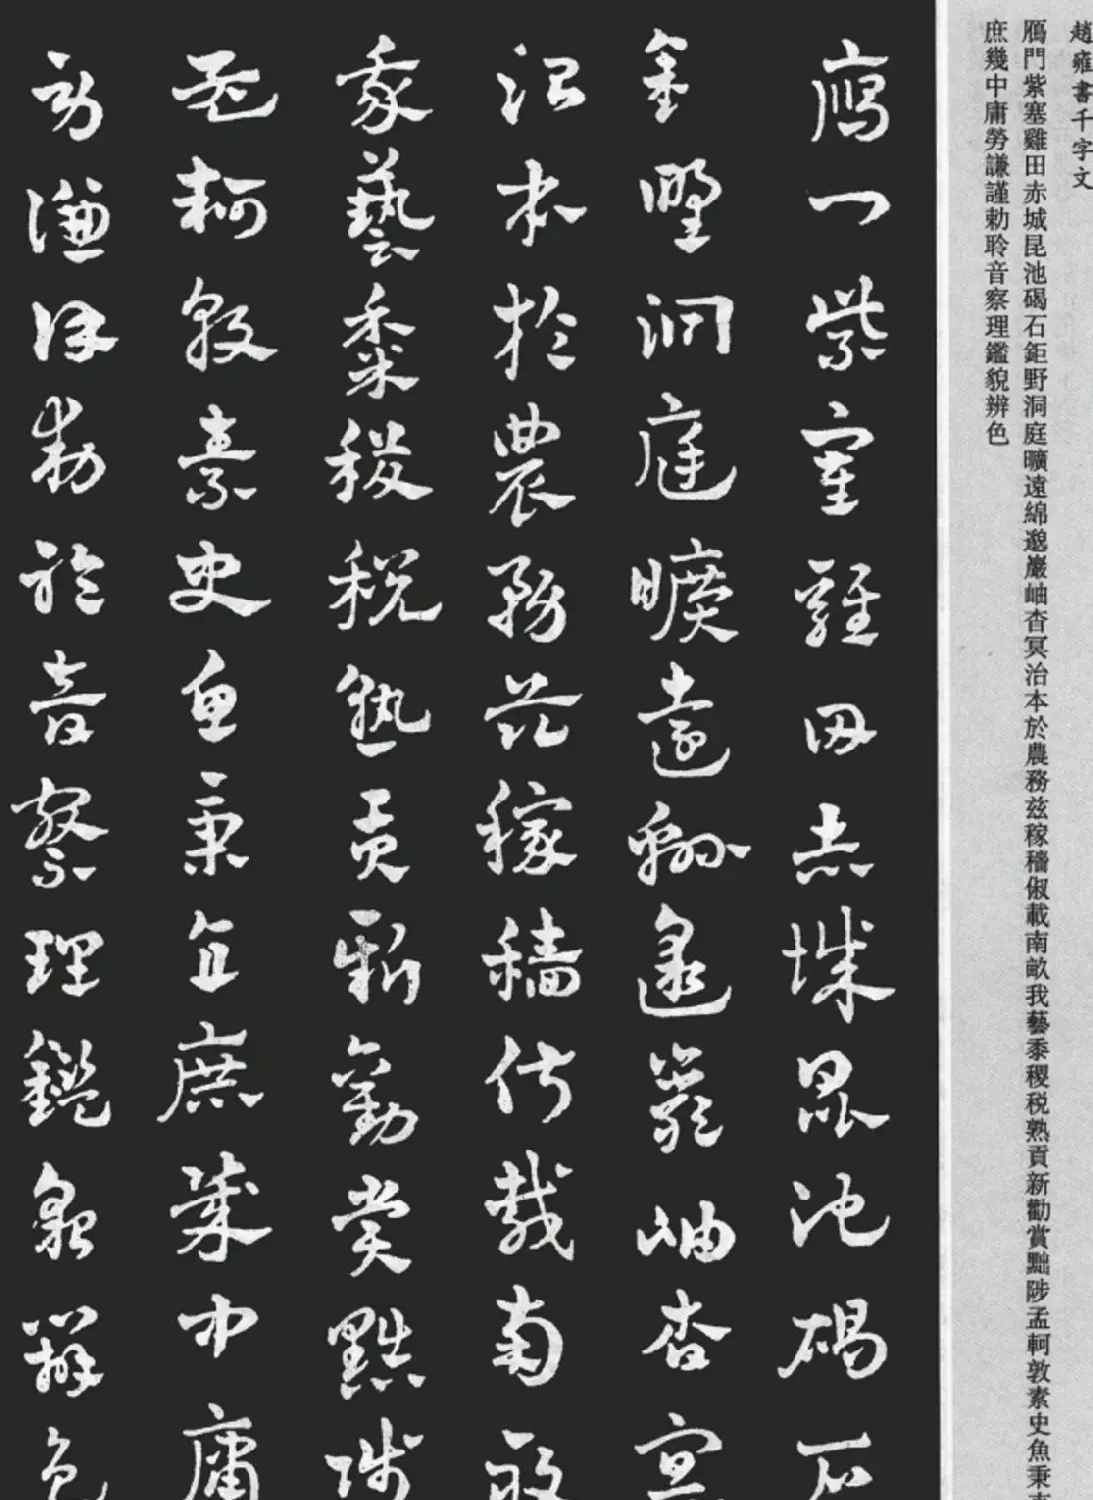 趙雍書千字文
鴈門紫塞雞田赤城昆池碣石鉅野洞庭曠遠綿邈巖岫杳冥治本於農務兹稼穡俶載南畝我藝黍稷税熟貢新勸賞黜陟孟軻敦素史魚秉直
庶幾中庸勞謙謹勅聆音察理鑑貌辨色
鴈門紫塞雞田赤城昆池碣石
鉅野洞庭曠遠綿邈巖岫杳冥
治本於農務兹稼穡俶載南畝
我藝黍稷税熟貢新勸賞黜陟
孟軻敦素史魚秉直庶幾中庸
勞謙謹勅聆音察理鑑貌辨色